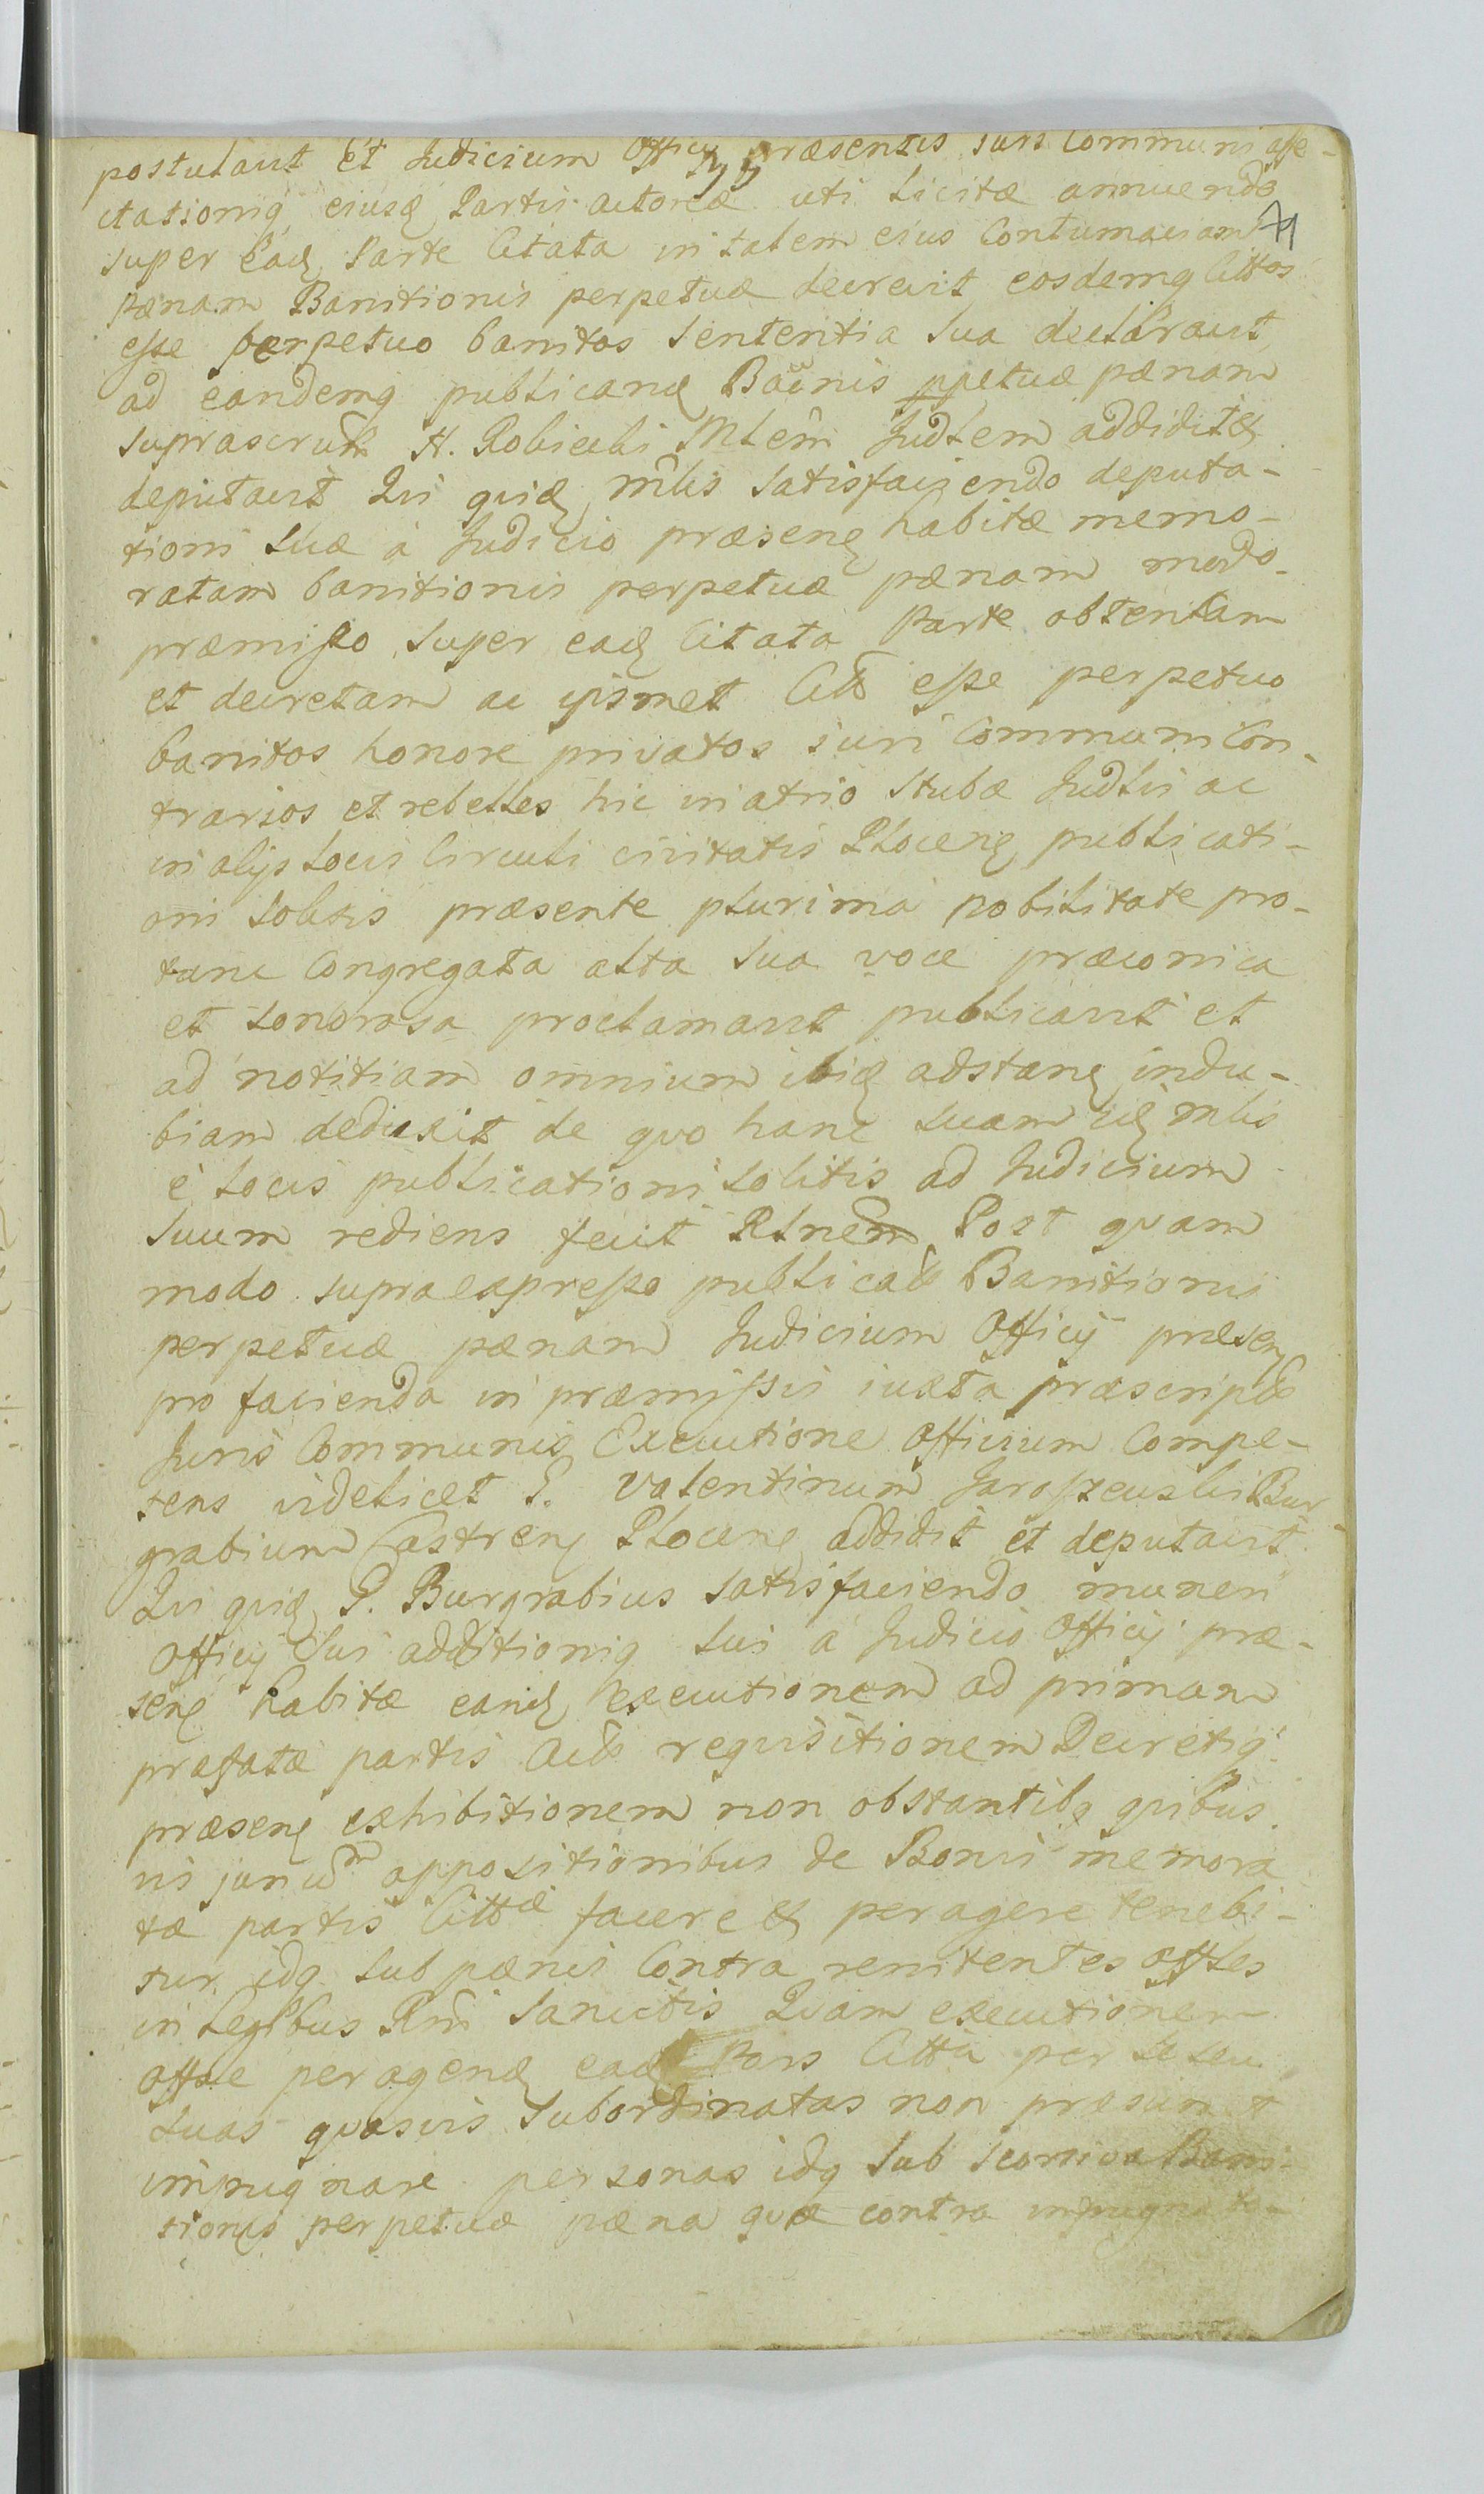 postulavit et Judicium Officij præsentis Juri Communi affe-
ctationiq, eiusd, Partis actoreæ uti licitæ annuendo
super ead, Parte Citata in talem eius Contumaciam
pænam Banitionis perpetuæ decrevit eosdemq, Cittos
esse perpetuo banitos Sententia Sua declaravit
ad eandemq, publicand, Baõnis ppetuæ pænam
suprascrutt. N. Robiecki Mlem Judlem addidit et
deputavit Qui quid, mlis Satisfaciendo deputa-
tioni Suæ à Judicio præsen, habitæ memo-
ratam banitionis perpetuæ pænam modo
præmisso super ead, Citata Parte obtentam
et decretam ac ipsmet Citt. esse perpetuo
banitos honore privatos iuri Communi Con-
trarios et rebelles hic in atrio Stubæ Judlis ac
in alijs locis Circuli civitatis Plocen, publicati-
oni solitis præsente plurima nobilitate pro-
tunc Congregata alta Sua voce præconica
et Sonorosa proclamavit publicavit et
ad notitiam omnium ibid, adstan, indu-
biam deduxit de quo hanc Suam id, mlis
è locis publicationi Solitis ad Judicium
Suum rediens fecit Rlnem Post quam
modo supraexpresso publicatt. Banitionis
perpetuæ pænam Judicium Officij præsen,
pro facienda in præmissis iuxta præscript.
Juris Communis Executione Officium Compe-
tens videlicet G. Valentinum Jaroszewski Bur
grabium Castren, Plocen, addidit et deputavit
Qui quid, G. Burgrabius Satisfaciendo muneri
Officij Sui additioniq, Sui à Judicio Officij præ-
sen, habitæ eand, executionem ad primam
præfatæ partis Act. requisitionem Decretiq,
præsen, exhibitionem non obstantibq, quibus
vis juridm oppositionibus de Bonis memora
tæ partis Cittæ facere et peragere tenebi-
tur, idq, Sub pænis Contra renitentes offles
in legibus Rni Sancitis Quam executionem
offle peragend, ead, Pars Citta per Se seu
Suas quasvis Subordinatas non præsumet
impugnare personas idq, Sub Scorsiva Bani-
tionis perpetuæ pæna quæ contra impugnato-